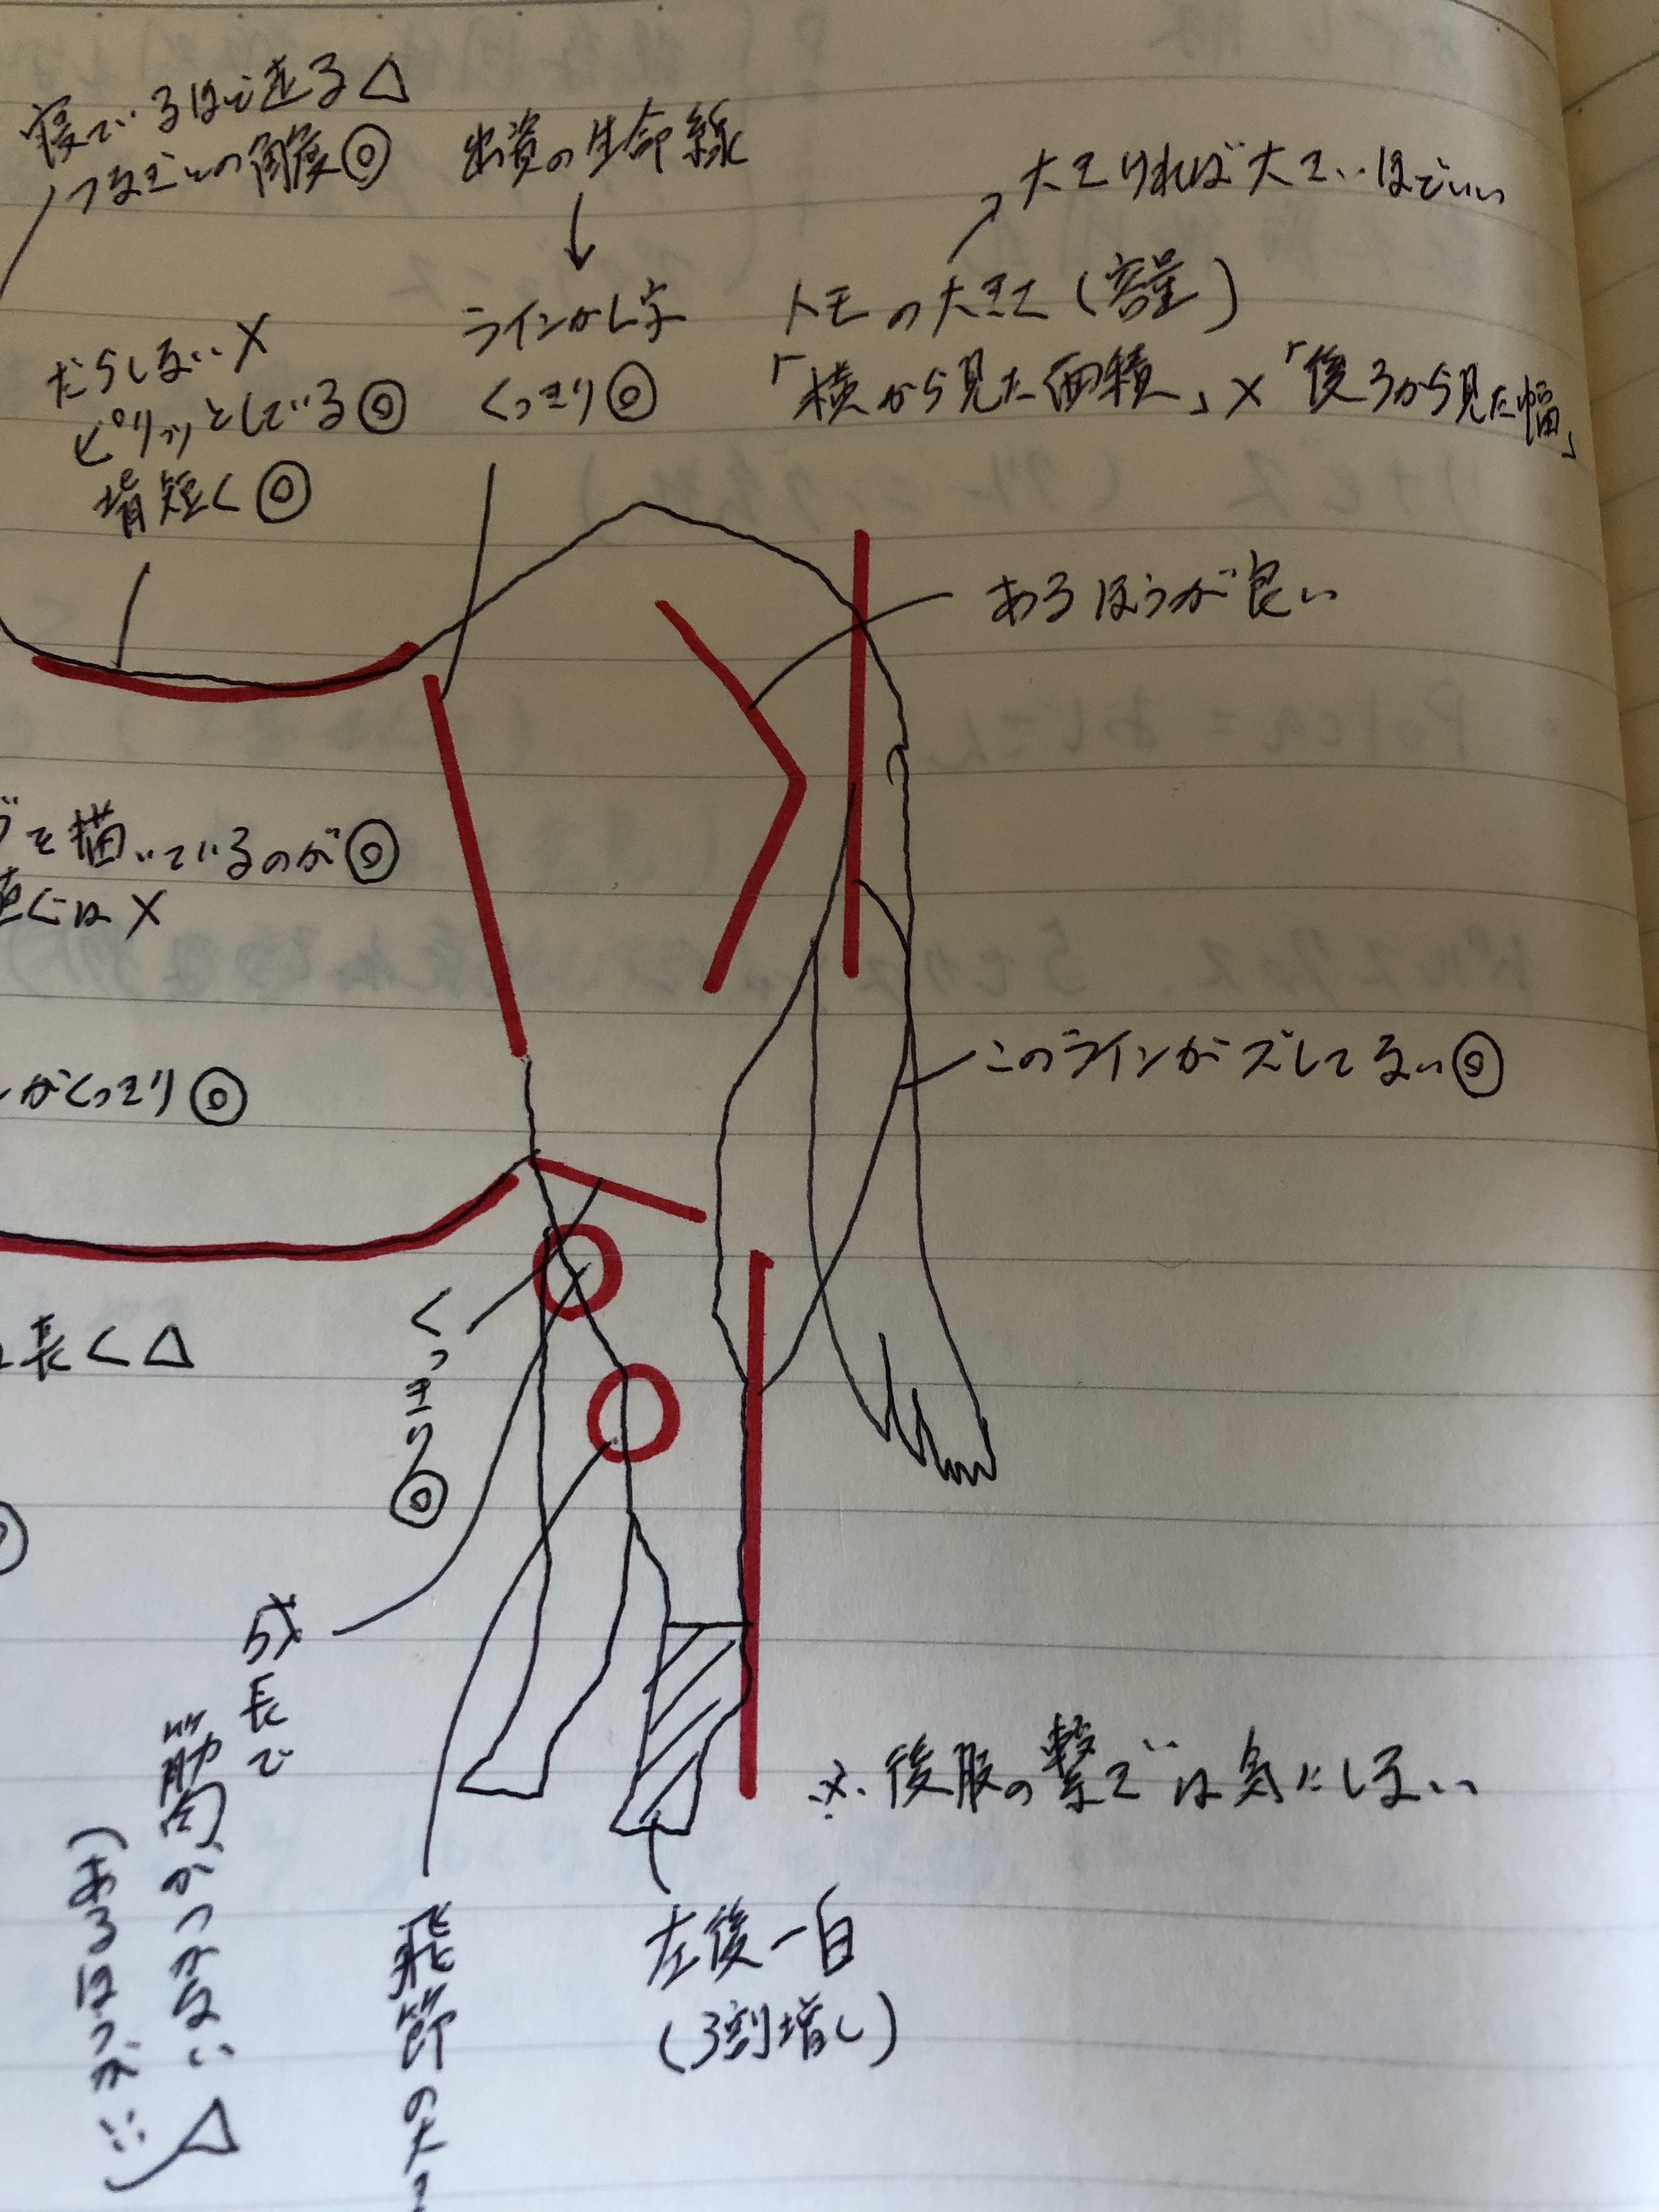 寝ているほど走る△
つなぎとの角度◎
出資の生命線
↓
ラインがし字
くっきり◎
大きければ大きいほどいい
トモの大きさ(容量)
「横から見た面積」×「後ろから見た幅」
だらしない×
ピリッとしている◎
背短く◎
あるほうが良い
を描いているのが◎
直ぐは×
がくっきり◎
このラインがズレてない◎
長く△
くっきり◎
成長で
筋肉がつかない
(あるほうがいい
△
飛節の大き
左後一白
(3割増し)
※後肢の繋ぎは気にしない